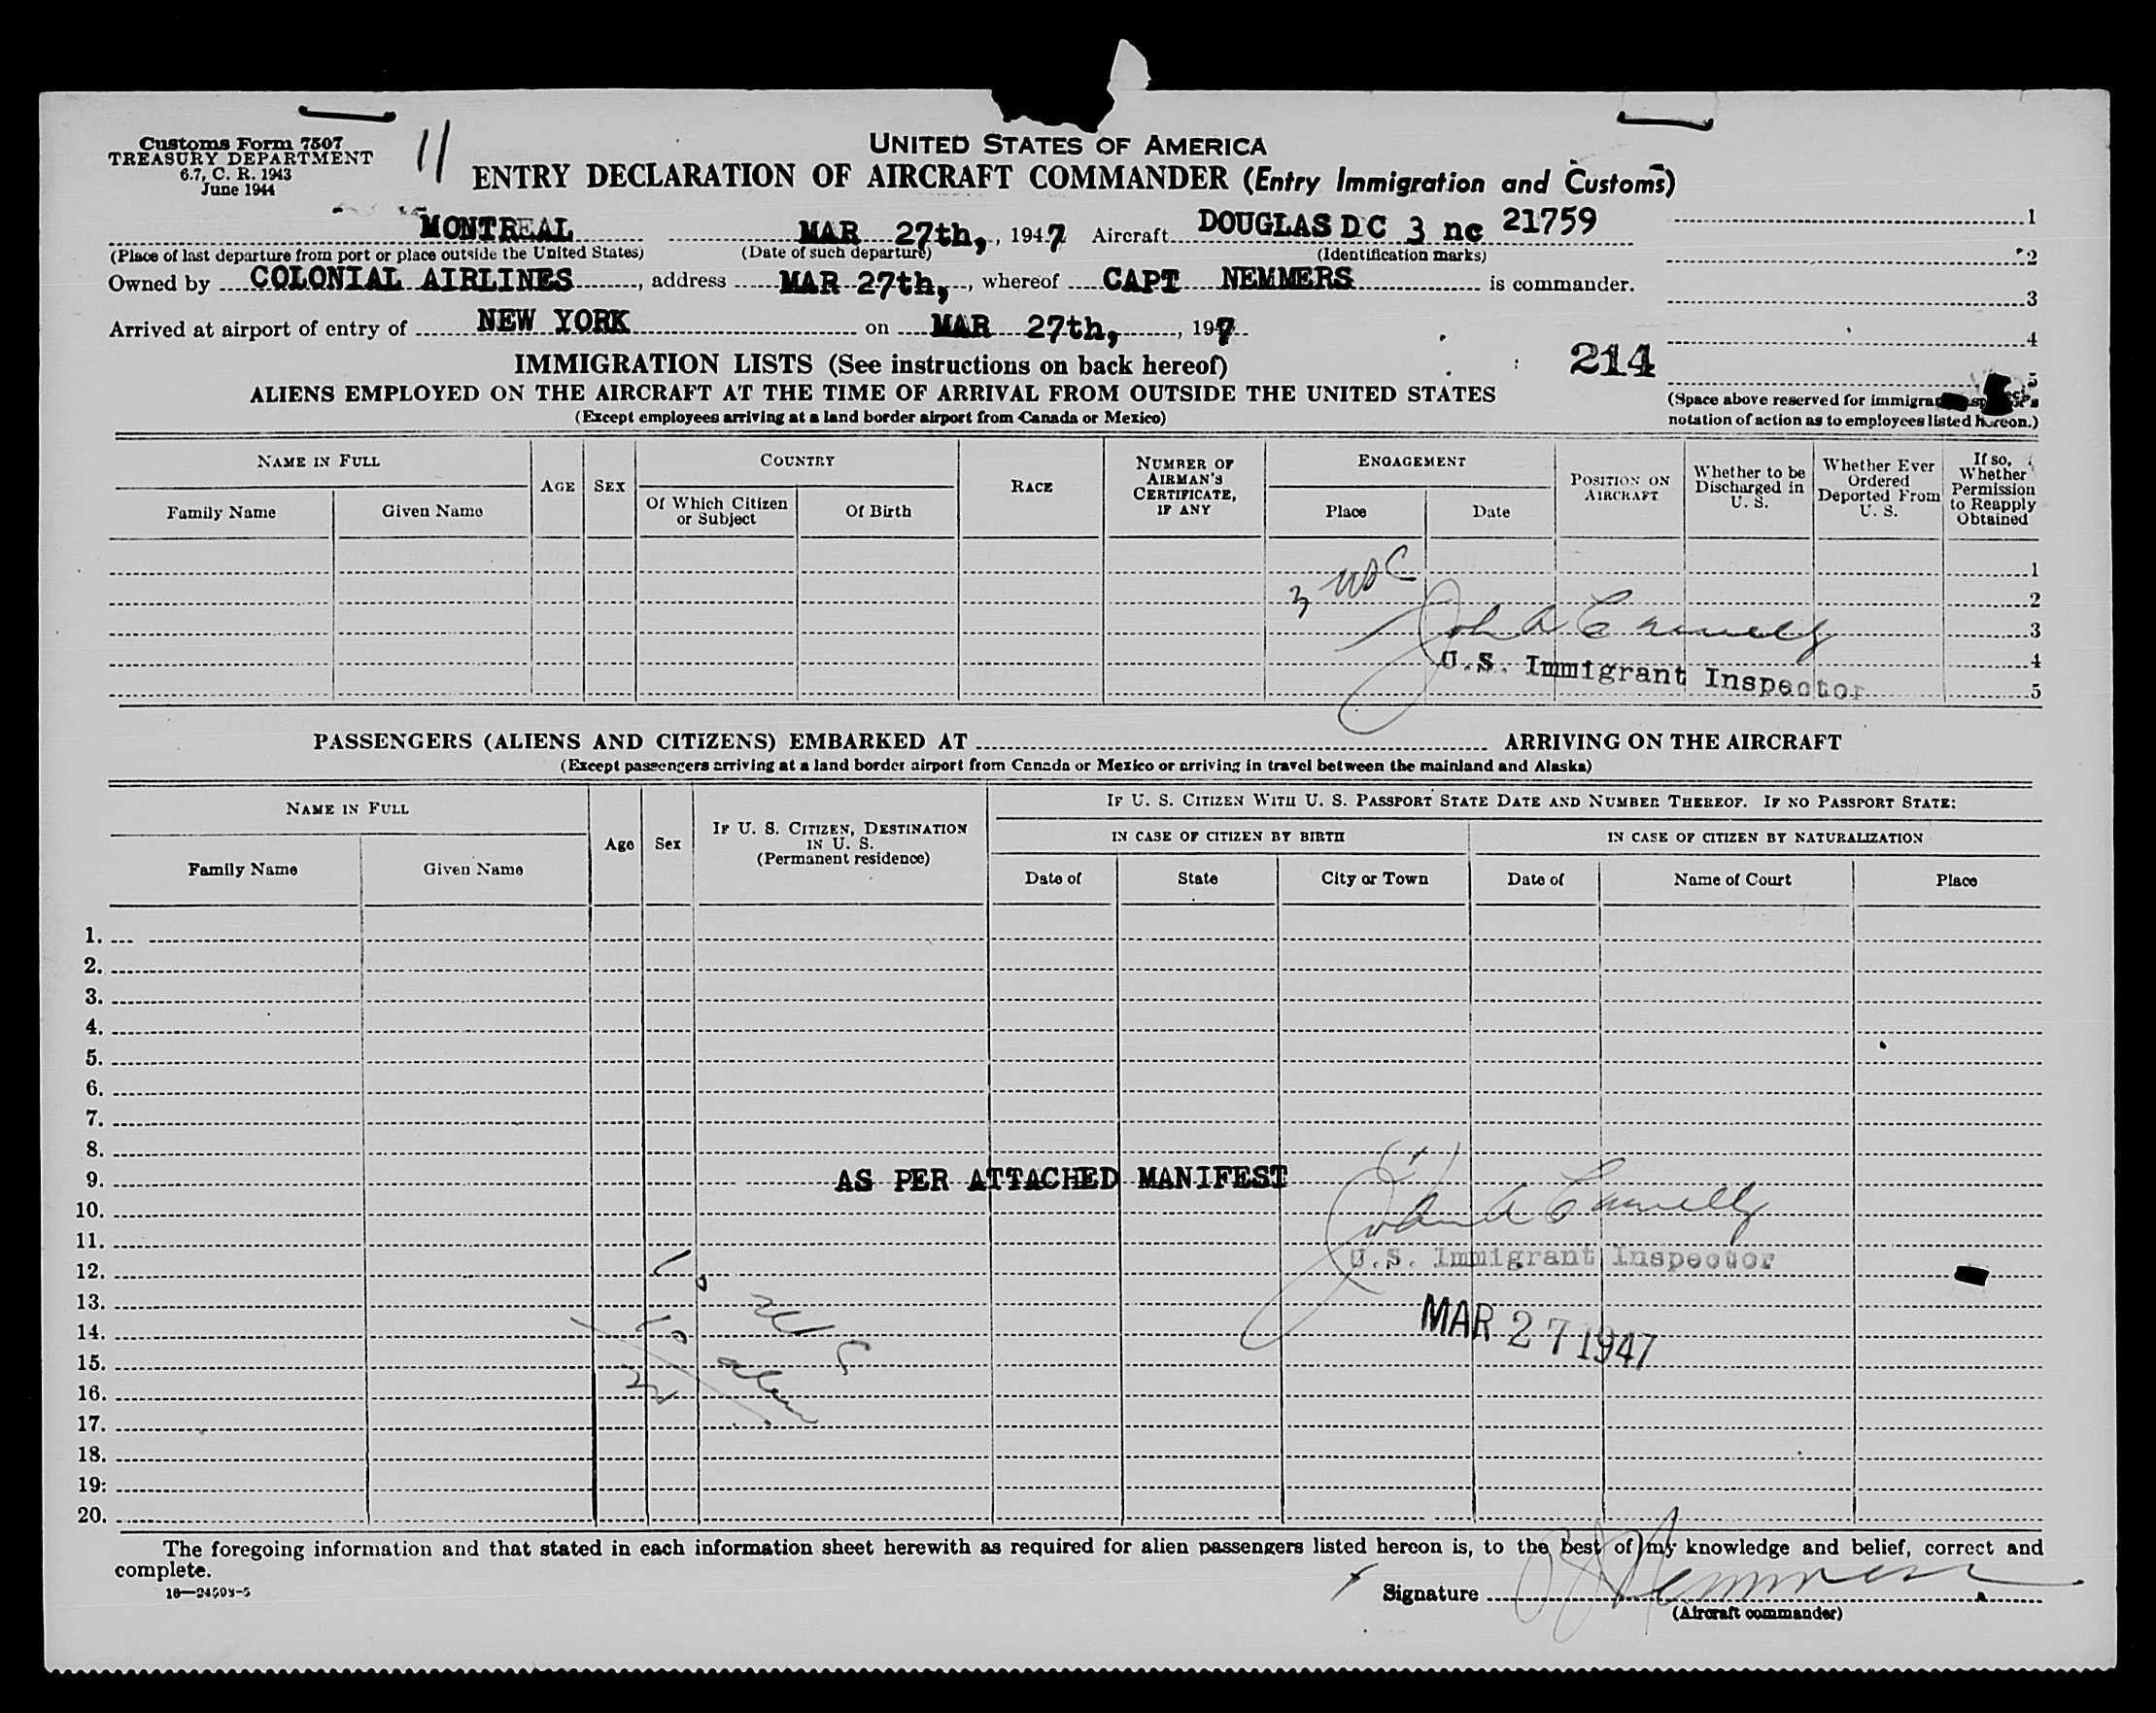 Customs Form 7507
TREASURY DEPARTMENT
6.7, C. R. 1943
June 1944
11
UNITED STATES OF AMERICA
ENTRY DECLARATION OF AIRCRAFT COMMANDER (Entry Immigration and Customs)
MONTREAL MAR 27th, , 1947 Aircraft DOUGLAS DC 3 nc 21759 1
(Place of last departure from port or place outside the United States) (Date of such departure) (Identification marks) 2
Owned by COLONIAL AIRLINES , address MAR 27th, , whereof CAPT NEMMERS is commander. 3
Arrived at airport of entry of NEW YORK on MAR 27th, , 197 4
IMMIGRATION LISTS (See instructions on back hereof) 214 5
ALIENS EMPLOYED ON THE AIRCRAFT AT THE TIME OF ARRIVAL FROM OUTSIDE THE UNITED STATES
(Except employees arriving at a land border airport from Canada or Mexico)
(Space above reserved for
notation of action as to employees listed hereon.)
NAME IN FULL
Family Name Given Name
AGE SEX
COUNTRY
Of Which Citizen or Subject
Of Birth
RACE
NUMBER OF AIRMAN'S CERTIFICATE, IF ANY
ENGAGEMENT
Place Date
POSITION ON AIRCRAFT
Whether to be Discharged in U. S.
Whether Ever Ordered Deported From U. S.
If so, Whether Permission to Reapply Obtained
1
3 USC
2
John A Connelly 3
U.S. Immigrant Inspector 4
5
PASSENGERS (ALIENS AND CITIZENS) EMBARKED AT ARRIVING ON THE AIRCRAFT
(Except passengers arriving at a land border airport from Canada or Mexico or arriving in travel between the mainland and Alaska)
NAME IN FULL
Family Name Given Name
Age Sex
IF U. S. CITIZEN, DESTINATION IN U. S.
(Permanent residence)
IF U. S. CITIZEN WITH U. S. PASSPORT STATE DATE AND NUMBER THEREOF. IF NO PASSPORT STATE:
IN CASE OF CITIZEN BY BIRTH IN CASE OF CITIZEN BY NATURALIZATION
Date of State City or Town Date of Name of Court Place
1.
2.
3.
4.
5.
6.
7.
8.
9. AS PER ATTACHED MANIFEST
10. John A Connelly
11.
U.S. Immigrant Inspector
12.
13.
MAR 27 1947
14.
15.
16.
17.
18.
19.
20.
The foregoing information and that stated in each information sheet herewith as required for alien passengers listed hereon is, to the best of my knowledge and belief, correct and
complete.
16—24503-5
Signature Nemmers
(Aircraft commander)